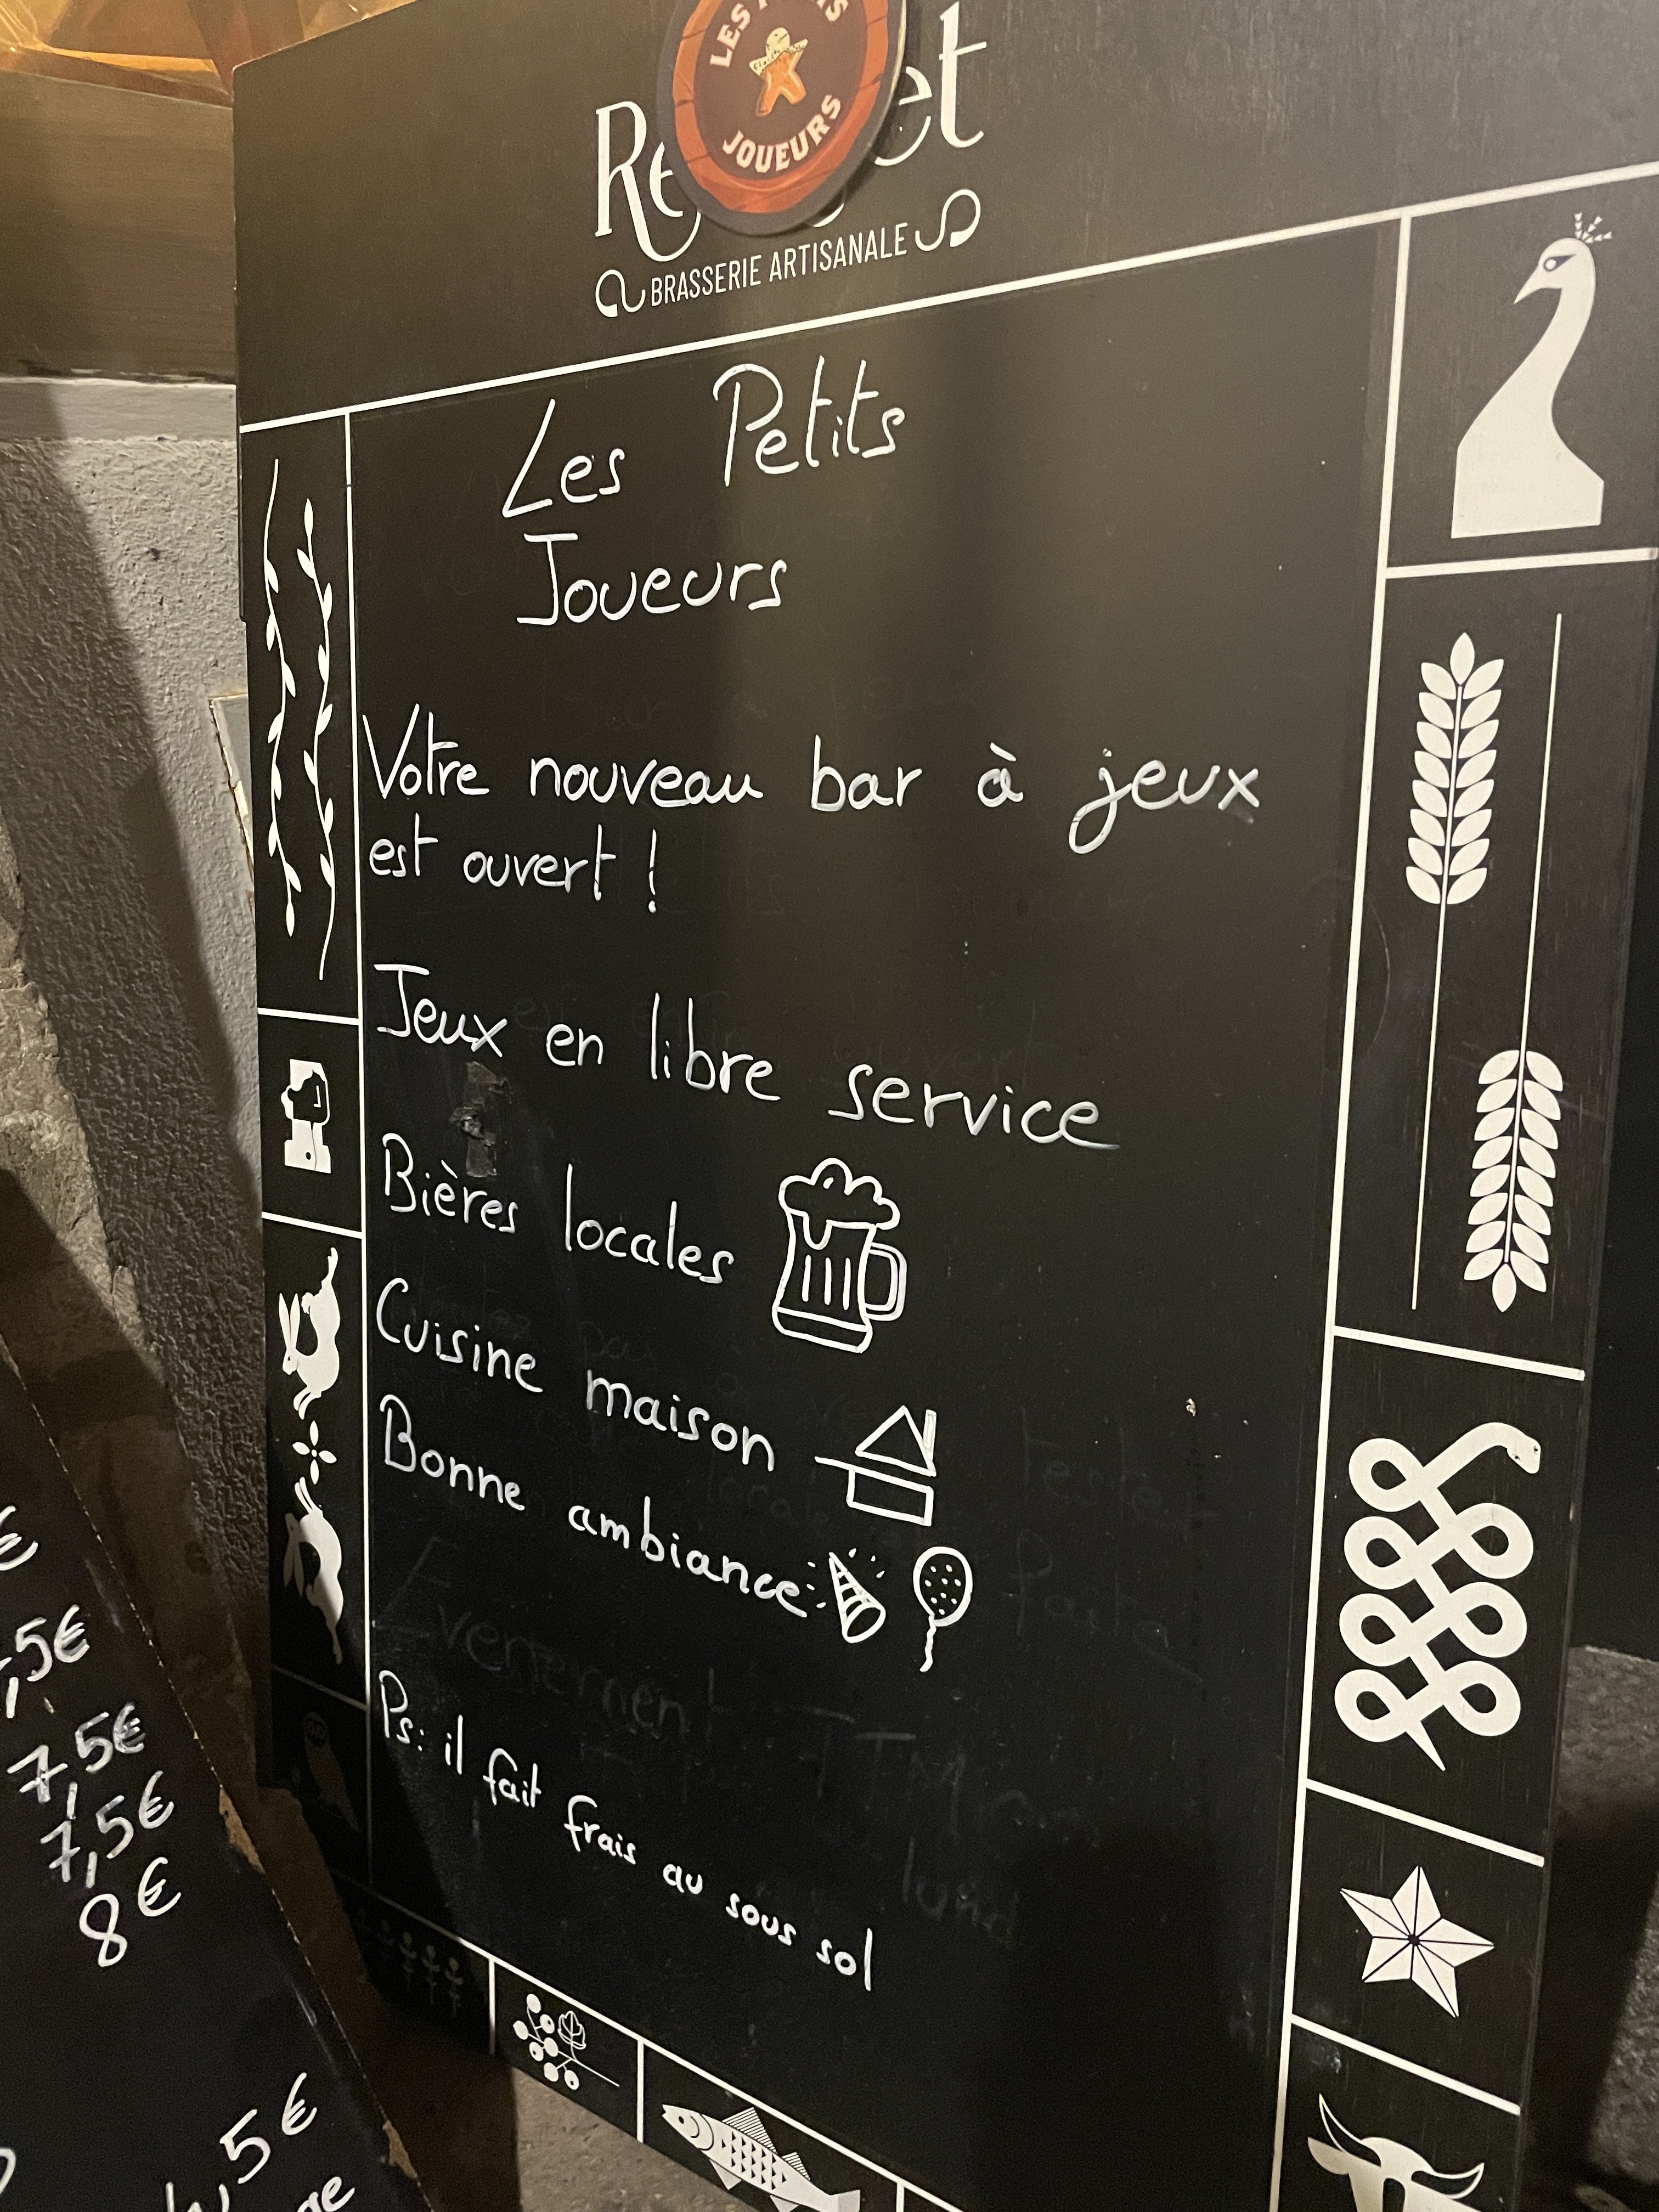 JOUEURS
BRASSERIE ARTISANALE
Les Petits
Joueurs
Votre nouveau bar à jeux
est ouvert !
Jeux en libre service
Bières locales
Cuisine maison
Bonne ambiance
Ps: il fait frais au sous sol
€
,5€
7,5€
7,5€
8€
5€